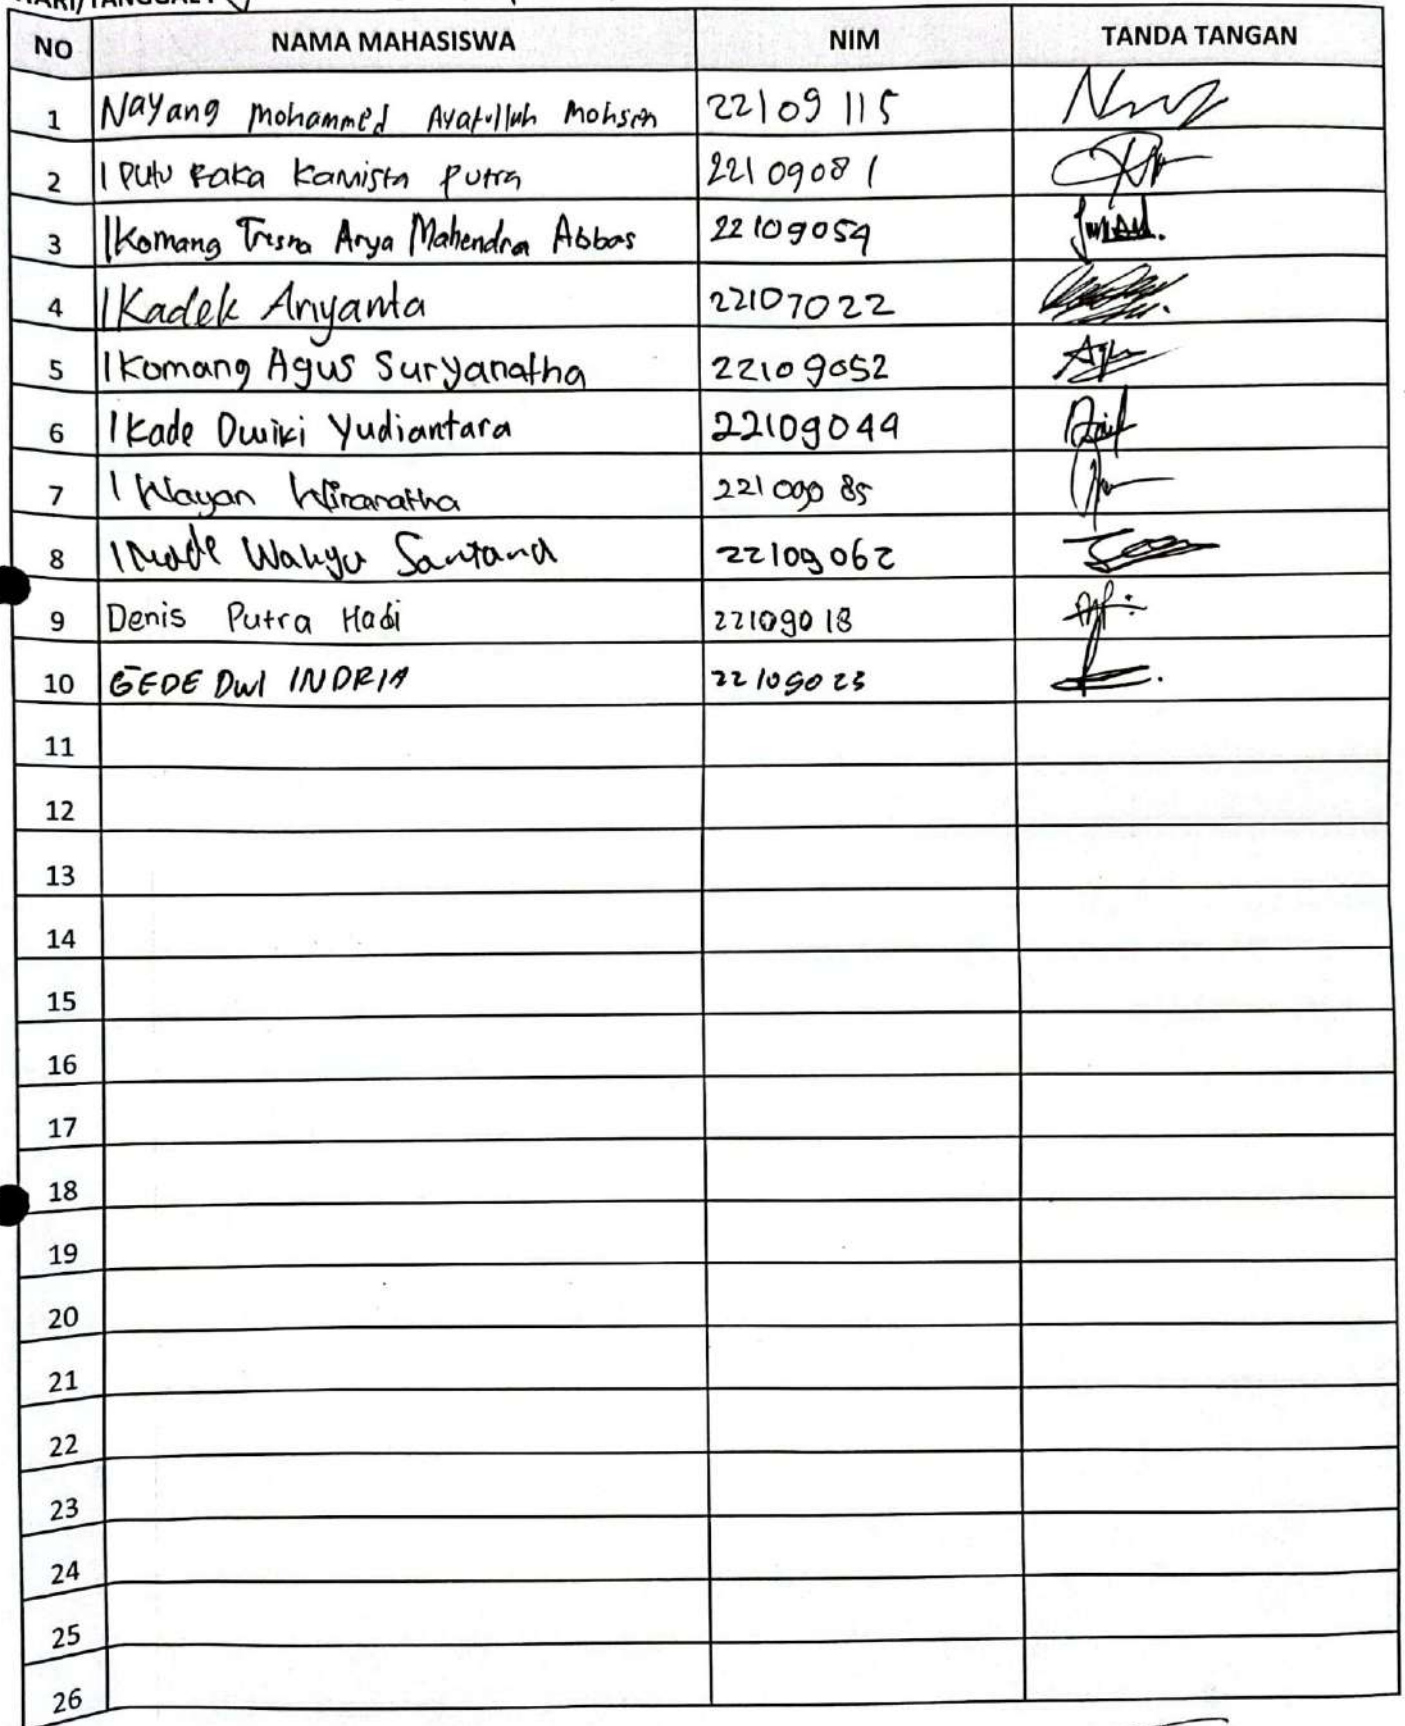 HARI/TANGGAL :
NO NAMA MAHASISWA NIM TANDA TANGAN
1 Nayang Mohammed Ayatullah Mohsen 22109115
2 I Putu Raka Kamista Putra 22109081
3 I Komang Tresna Arya Mahendra Abbas 22109059
4 I Kadek Ariyanta 22107022
5 I Komang Agus Suryanatha 22109052
6 I Kade Dwiki Yudiantara 22109044
7 I Wayan Wiranatha 22109085
8 I Made Wahyu Santana 22109062
9 Denis Putra Hadi 22109018
10 GEDE DwI INDRIA 22109023
11
12
13
14
15
16
17
18
19
20
21
22
23
24
25
26